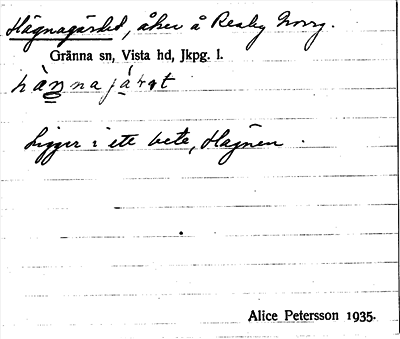 Hägnagärdet, åker å Reaby Norrg.
Gränna sn, Vista hd, Jkpg. l.
Ligger i ett bete, Hägnen.
Alice Petersson 1935.